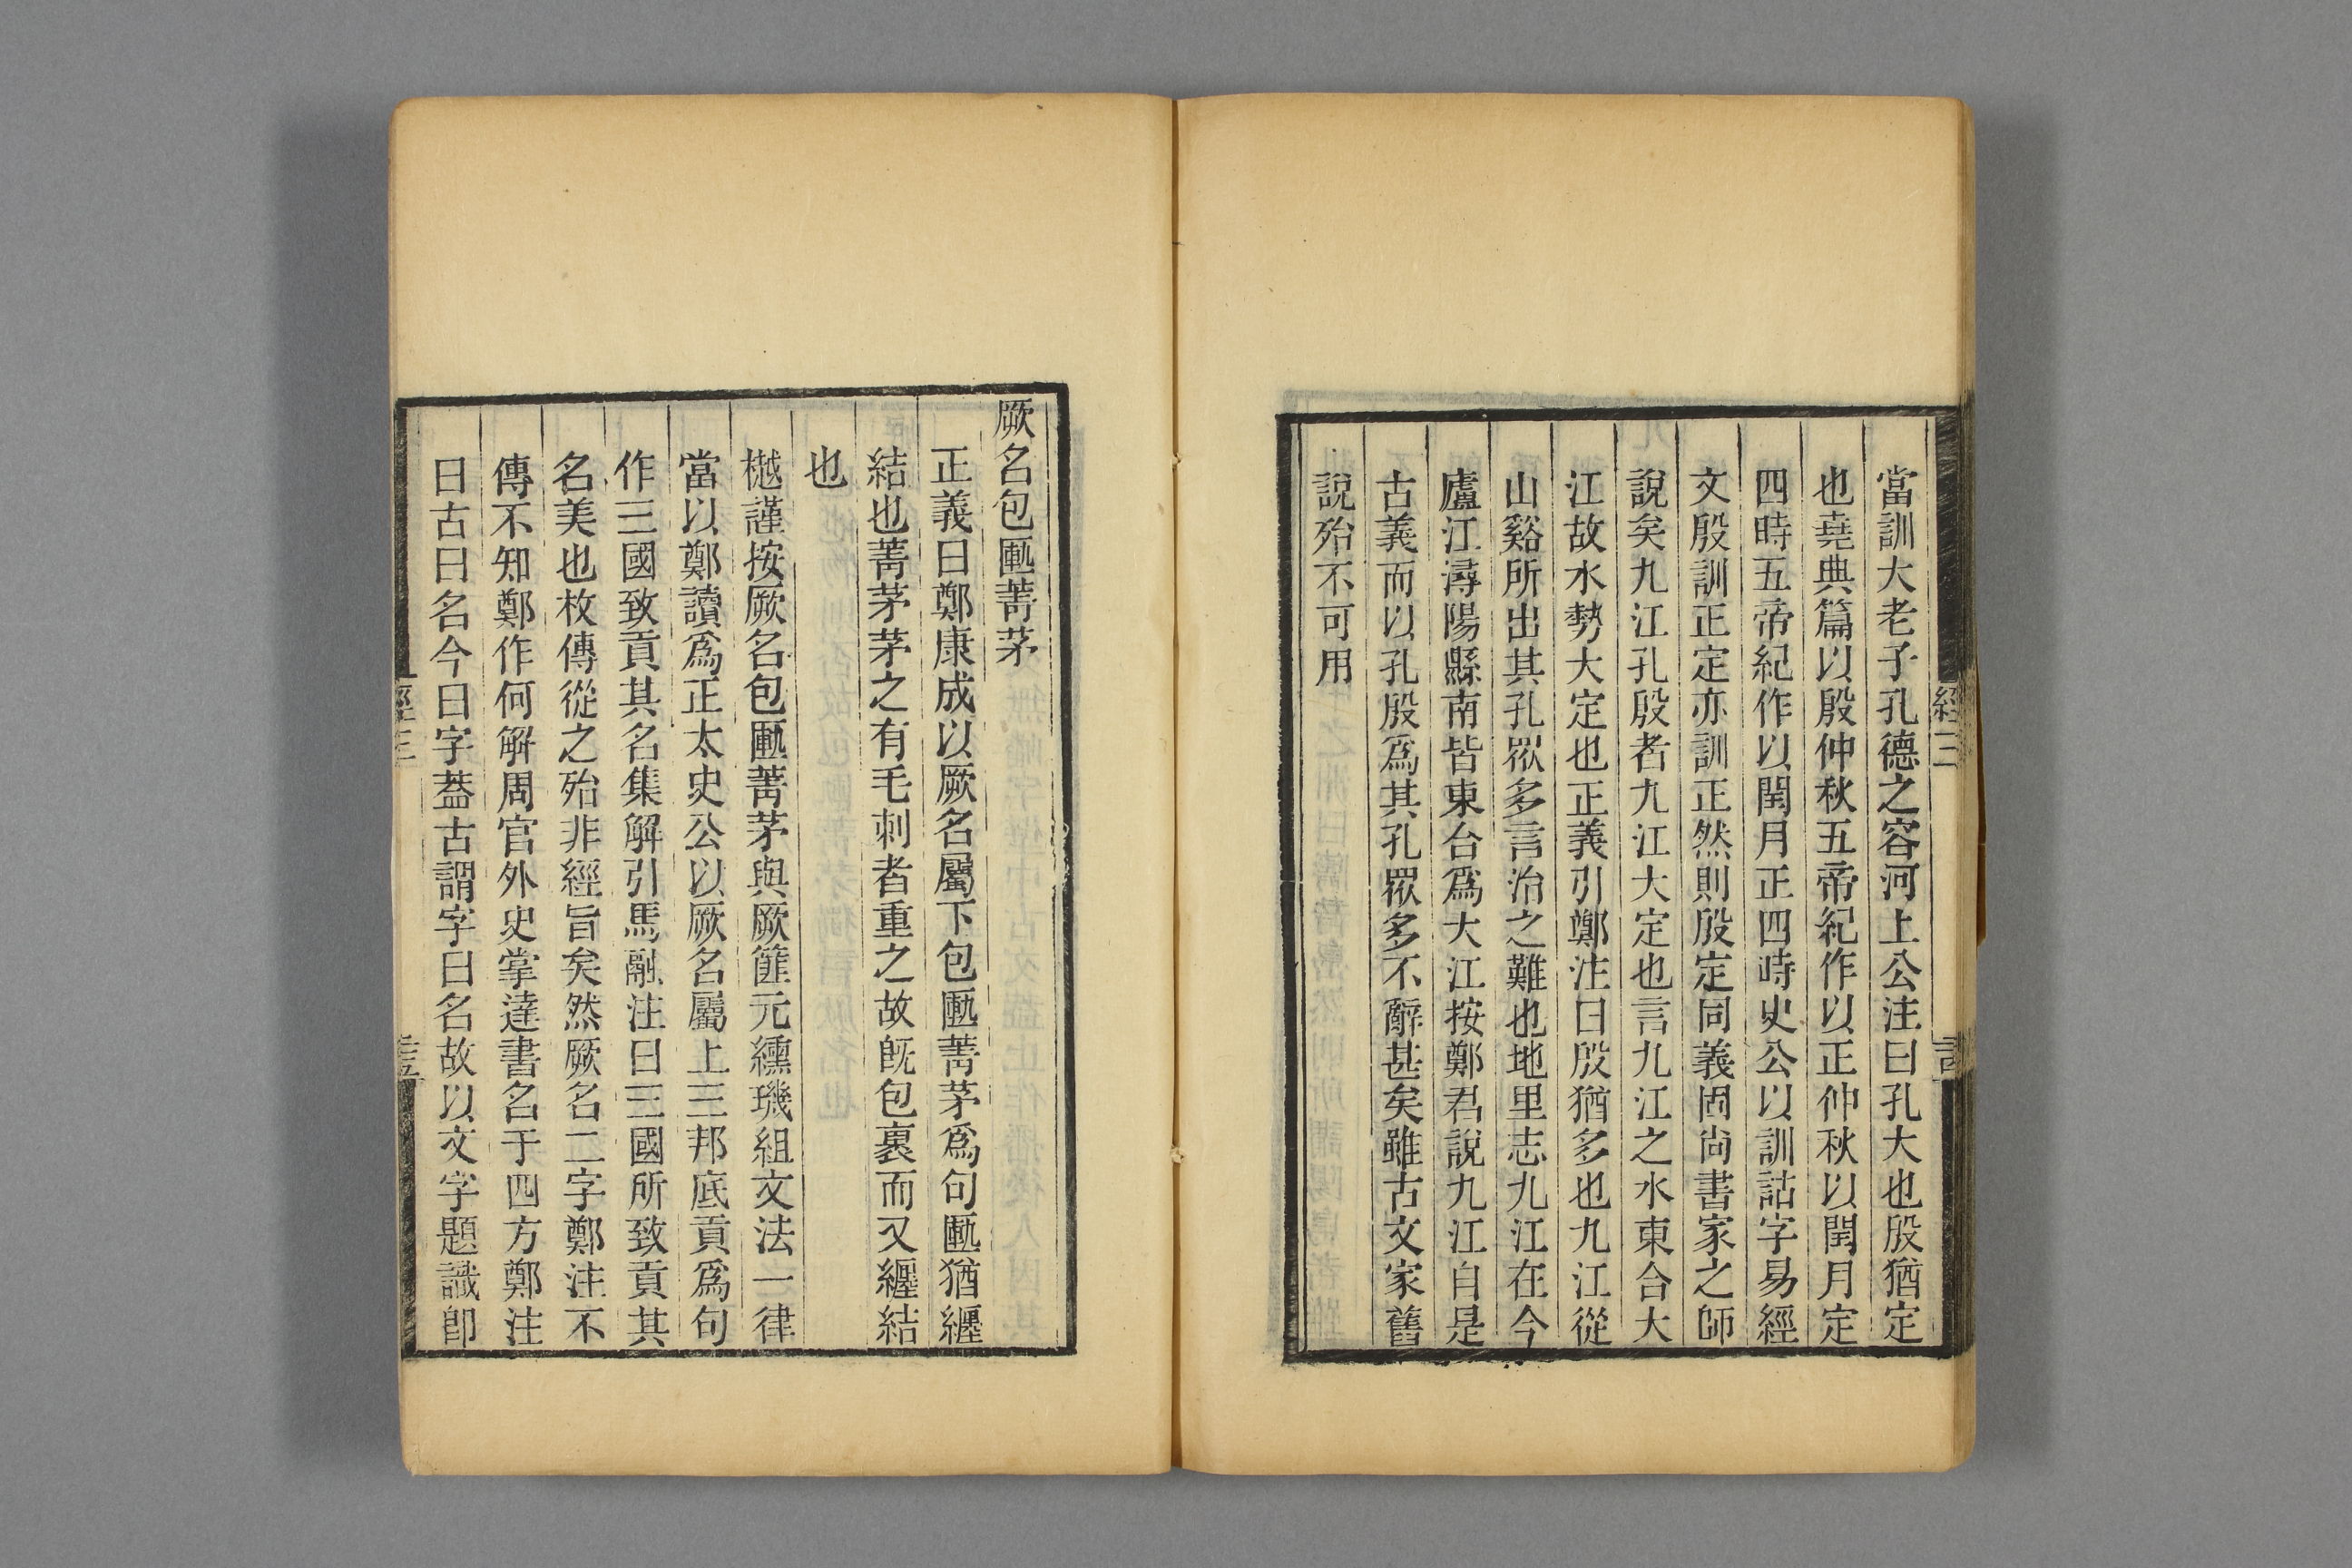 當訓大老子孔德之容河上公注曰孔大也殷猶定
也堯典篇以殷仲秋五帝紀作以正仲秋以閏月定
四時五帝紀作以閏月正四時史公以訓詁字易經
文殷訓正定亦訓正然則殷定同義固尚書家之師
說矣九江孔殷者九江大定也言九江之水東合大
江故水勢大定也正義引鄭注曰殷猶多也九江從
山谿所出其孔眾多言治之難也地里志九江在今
廬江潯陽縣南皆東合爲大江按鄭君說九江自是
古義而以孔殷爲其孔眾多不辭甚矣雖古文家舊
說殆不可用
經三
厥名包匭菁茅
正義曰鄭康成以厥名屬下包匭菁茅爲句匭猶纒
結也菁茅茅之有毛刺者重之故旣包裹而又纒結
也
樾謹按厥名包匭菁茅與厥篚元纁璣組文法一律
當以鄭讀爲正太史公以厥名屬上三邦底貢爲句
作三國致貢其名集解引馬融注曰三國所致貢其
名美也枚傳從之殆非經旨矣然厥名二字鄭注不
傳不知鄭作何解周官外史掌達書名于四方鄭注
曰古曰名今曰字葢古謂字曰名故以文字題識卽
經三